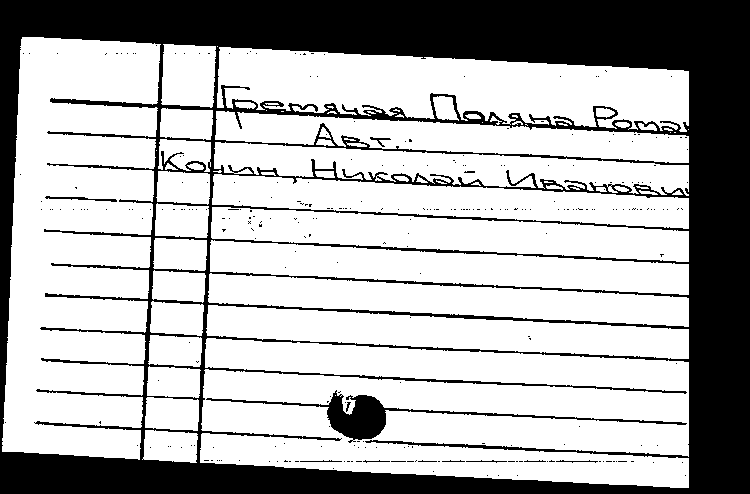 Гремячая Поляна Роман
Авт.:
Кочин, Николай Иванович